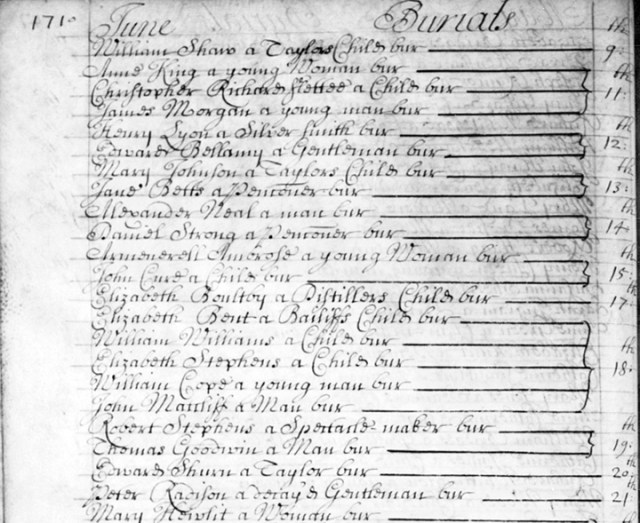 1710 June Burials
William Shaw a Taylors Child bur 9th
Anne King a young Woman bur
Christopher Richard a Child bur 11th
James Morgan a young man bur
Henry Lyon a Silver smith bur
Edward Bellamy a Gentleman bur 12th
Mary Johnson a Taylors Child bur
Jane Betts a Pencõner bur 13th
Allexander Neal a man bur
Daniel Strong a Pencõner bur 14th
Ambrose a young Woman bur
John a Child bur 15th
Elizabeth Boultby a Distillers Child bur 17th
Elizabeth Bent a Bailiffs Child bur
William Williams a Child bur
Elizabeth Stephens a Child bur 18th
William Cope a young man bur
John a Man bur
Robert Stephens a Spectacle maker bur
Thomas Goodwin a Man bur 19th
Edward a Taylor bur 20th
Peter Radison a decay'd Gentleman bur 21
Mary a Woman bur